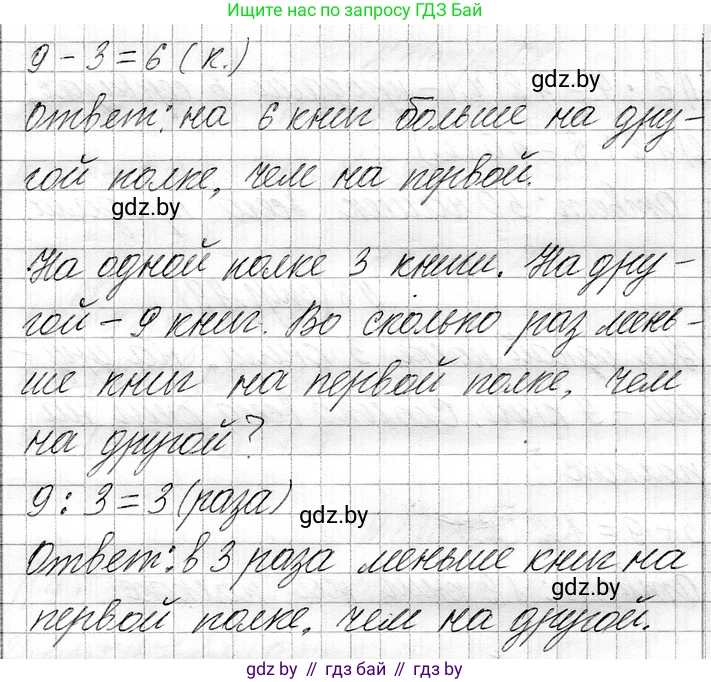 Ищите нас по запросу ГДЗ Бай
9 - 3 = 6 (к.)
gdz.by
Ответ: на 6 книг больше на дру-
гой полке, чем на первой.
gdz.by
На одной полке 3 книги. На дру-
гой - 9 книг. Во сколько раз мень-
ше книг на первой полке, чем
на другой?
9 : 3 = 3 (раза)
gdz.by
Ответ: в 3 раза меньше книг на
gdz.by
первой полке, чем на другой.
gdz by // гдз бай // гдз by